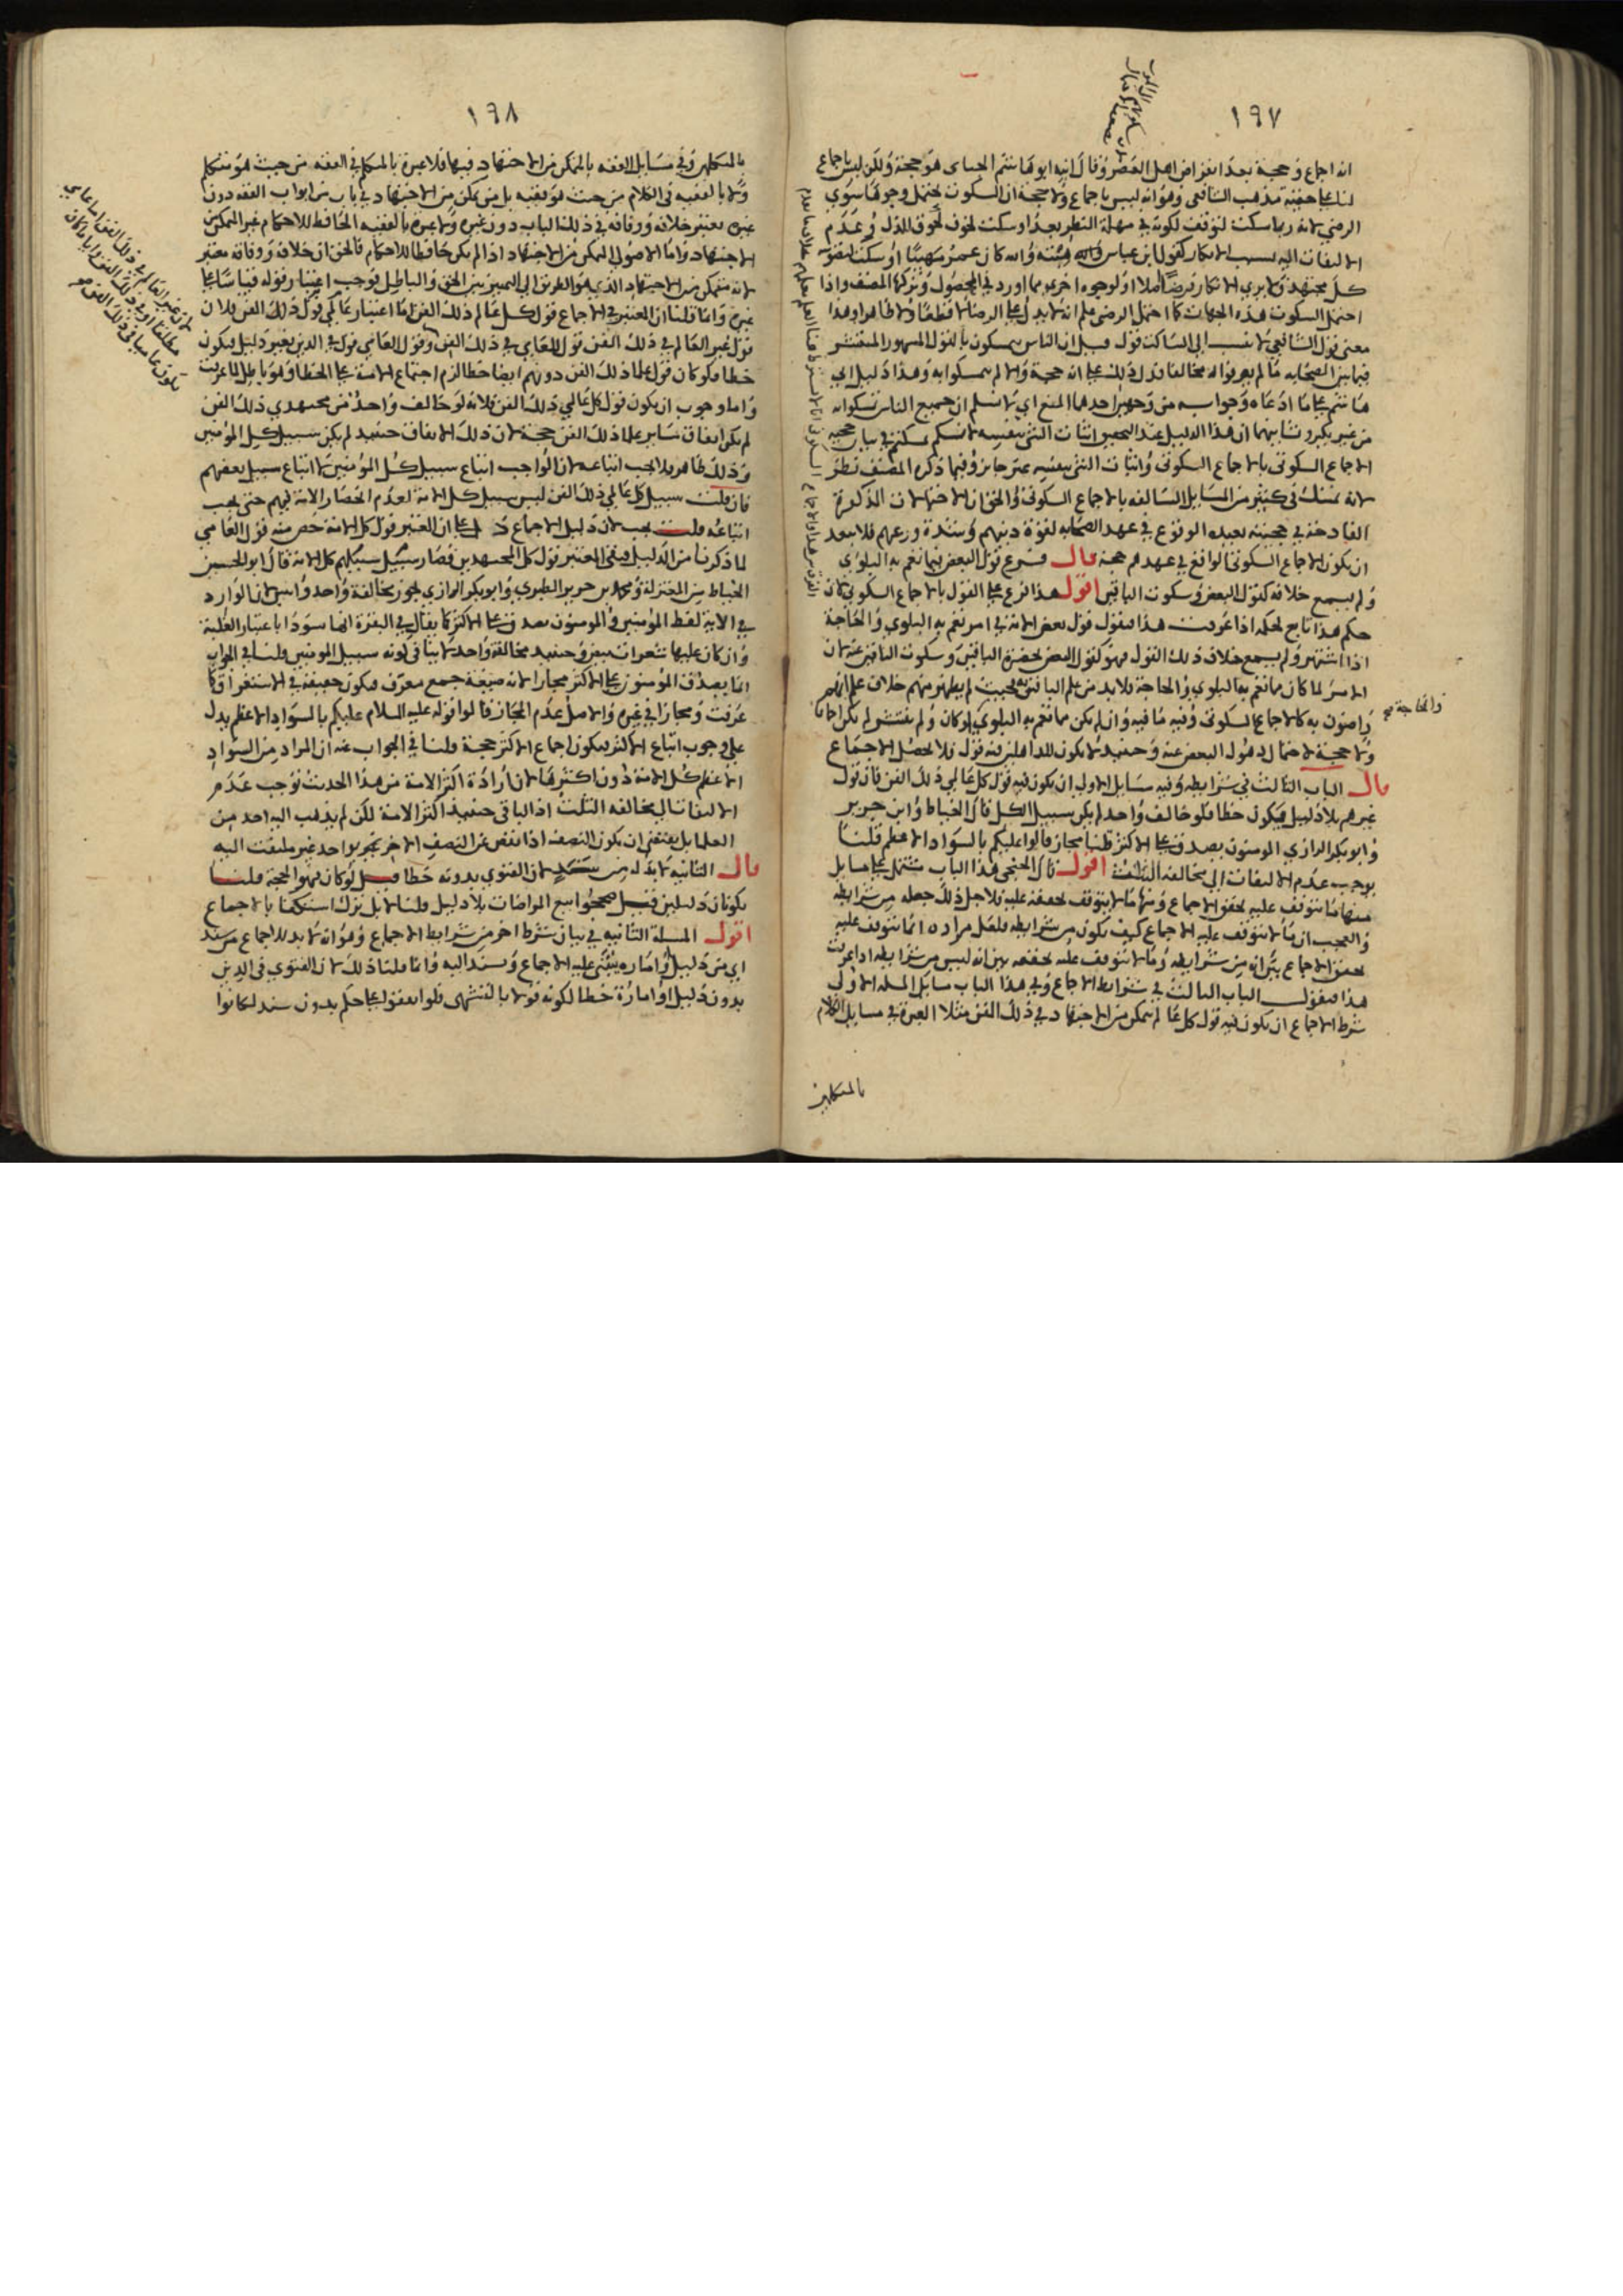 ١٩٧
انه اجماع وحجة بعد انقراض اهل العصر وقال ابنه ابو هاشم الجباى هو حجة ولكن ليس باجماع
لنا على حقية مذهب الشافعى وهو انه ليس باجماع ولا حجة ان السكوت يحتمل وجوها سوى
الرضى لانه ربما سكت لتوقف لكونه فى مهلة النظر بعد او سكت لخوف لحوق الذل وعدم
الالتفات اليه بسبب الانكار كقول ابن عباس هبته والله كان عمر مهيبا او سكت لتصويب
كل مجتهد ولا يرى الانكار فرضا اصلا او لوجوه اخر مما اورد فى المحصول وتركها المصنف واذا
احتمل السكوت هذه الجهات كما احتمل الرضى علم انه لا يدل على الرضا لا قطعا ولا ظاهرا وهذا
معنى قول الشافعى لا ينسب الى الساكت قول قيل ان الناس يتمسكون بالقول المشهور المنتشر
فيما بين الصحابه ما لم يعرفوا له مخالفا فدل ذلك على انه حجة والا لم يتمسكوا به وهذا دليل ابى
هاشم على ما ادعاه وجوابه من وجهين احدهما المنع اى لا نسلم ان جميع الناس تمسكوا به
من غير نكير وثانيهما ان هذا الدليل عند التحقيق اثبات الشئ بنفسه لانكم تمسكتم فى بيان حجية
الاجماع السكوتى بالاجماع السكوتى واثبات الشئ بنفسه غير جايز وفيما ذكره المصنف نظر
لانه تمسك فى كثير من المسايل السالفه بالاجماع السكوتى والحق ان الاحتمالات المذكورة
القادحة فى حجيته بعيده الوقوع فى عهد الصحابه لقوة دينهم وشدة ورعهم فلا يبعد
ان يكون الاجماع السكوتى الواقع فى عهدهم حجة قال فرع قول البعض فيما تعم به البلوى
ولم يسمع خلافه كقول البعض وسكوت الباقين اقول هذا فرع على القول بالاجماع السكوتى كان
حكم هذا تابع لحكمه اذا عرفت هذا فنقول قول بعض الامة فى امر تعم به البلوى والحاجة
اذا اشتهر ولم يسمع خلاف ذلك القول فهو كقول البعض بحضرة الباقين وسكوت الباقين عنه لان
الامر لما كان مما تعم به البلوى والحاجة فلابد من علم الباقين به بحيث لم يظهر منهم خلاف علم انهم
راضون به كالاجماع السكوتى وفيه ما فيه وان لم يكن مما تعم به البلوى او كان ولم ينتشر لم يكن اجماعا
ولا حجة لاحتمال ذهول البعض عنه وحينئذ لا يكون للذاهلين فيه قول فلا يحصل الاجماع
قال الباب الثالث فى شرايطه وفيه مسايل الاولى ان يكون فيه قول كل عالمى ذلك الفن فان قول
غيرهم بلا دليل فيكون خطا فلو خالف واحد لم يكن سبيل الكل قال الخياط وابن جرير
وابو بكر الرازى المومنون يصدق على الاكثر قلنا مجاز قالوا عليكم بالسواد الاعظم قلنا
يوجب عدم الالتفات الى مخالفة الثلث اقول قال الخنجى هذا الباب مشتمل على مسايل
منها ما يتوقف عليه تحقق الاجماع ومنها ما لا يتوقف تحققه عليه فلاجل ذلك جعله من شرايطه
والعجب ان ما لا يتوقف عليه الاجماع كيف يكون من شرايطه فلعل مراده انما يتوقف عليه
تحقق الاجماع بين انه من شرايطه وما لا يتوقف عليه تحققه بين انه ليس من شرايطه اذا عرفت
هذا فنقول الباب الثالث فى شرايط الاجماع وفى هذا الباب مسايل المسله الاولى
شرط الاجماع ان يكون فيه قول كل عالم متمكن من الاجتهاد فى ذلك الفن مثلا العبرة فى مسايل الكلام
بالمتكلمين
والحاجة صح
١٩٨
بالمتكلمين وفى مسايل الفقه بالمتمكن من الاجتهاد فيها فلا عبرة بالمتكلم فى الفقه من حيث هو متكلم
ولا بالفقيه فى الكلام من حيث هو فقيه بل من تمكن من الاجتهاد فى باب من ابواب الفقه دون
غيره يعتبر خلافه ووفاقه فى ذلك الباب دون غيره ولا عبرة بالفقيه الحافظ للاحكام غير المتمكن
الاجتهاد واما الاصولى المتمكن من الاجتهاد اذا لم يكن حافظا للاحكام فالحق ان خلافه ووفاقه معتبر
لانه متمكن من الاجتهاد الذى هو الطريق الى التمييز بين الحق والباطل فوجب اعتبار قوله قياسا على
غيره وانما قلنا ان المعتبر فى الاجماع قول كل عالم ذلك الفن اما اعتبار عالمى قول ذلك الفن فلان
قول غير العالم فى ذلك الفن قول للعامى فى ذلك الفن وقول العامى قول فى الدين بغير دليل فيكون
خطا فلو كان قول علما ذلك الفن دونهم ايضا خطا لزم اجتماع الامة على الخطا وهو باطل لما عرفت
واما وجوب ان يكون قول كل عالمى ذلك الفن فلانه لو خالف واحد من مجتهدى ذلك الفن
لم يكن اتفاق ساير علما ذلك الفن حجة لان ذلك الاتفاق حينئذ لم يكن سبيل كل المؤمنين
وذلك ظاهر فلا يجب اتباعه لان الواجب اتباع سبيل كل المؤمنين لا اتباع سبيل بعضهم
فان قلت سبيل كل عالمى ذلك الفن ليس سبيل كل الامة لعدم انحصار الامة فيهم حتى يجب
اتباعه قلت يجب لان دليل الاجماع دل على ان المعتبر قول كل الامة خص منه قول العامى
لما ذكرنا من الدليل فبقى المعتبر قول كل المجتهدين فصار سبيل سبيلهم كل الامة قال ابو الحسين
الخياط من المعتزلة ومحمد بن جرير الطبرى وابو بكر الرازى يجوز مخالفة واحد واثنين لان الوارد
فى الاية لفظ المؤمنين والمومنون يصدق على الاكثر كما يقال فى البقرة انها سودا باعتبار الغلبة
وان كان عليها شعرات بيض وحينئذ مخالفة واحد لا ينافى كونه سبيل المومنين قلنا فى الجواب
انما يصدق المؤمنون على الاكثر مجازا لانه صيغة جمع معرف فيكون حقيقة فى الاستغراق كما
عرفت ومجازا فى غيره والاصل عدم المجاز قالوا قوله عليه السلام عليكم بالسواد الاعظم يدل
على وجوب اتباع الاكثر فيكون اجماع الاكثر حجة قلنا فى الجواب عنه ان المراد من السواد
الاعظم كل الامة دون اكثرها لان ارادة اكثر الامة من هذا الحديث توجب عدم
الالتفات الى مخالفة الثلث اذ الباقى حينئذ اكثر الامة لكن لم يذهب اليه احد من
العلما بل يقتضى ان يكون النصف اذا نقص عن النصف الاخر بواحد غير ملتفت اليه
قال الثانيه لابد له من سند لان الفتوى بدونه خطا قيل لو كان فهو الحجة قلنا
يكونان دليلين قيل صححوا بيع المراضات بلا دليل قلنا لا بل ترك استكفا بالاجماع
اقول المسلة الثانيه فى بيان شرط اخر من شرايط الاجماع وهو انه لا بد للاجماع من سند
اى من دليل او اماره يبتنى عليه الاجماع ويسند اليه وانما قلنا ذلك لان الفتوى فى الدين
بدون دليل او امارة خطا لكونه قولا بالتشهى فلو اتفقوا على حكم بدون سند لكانوا